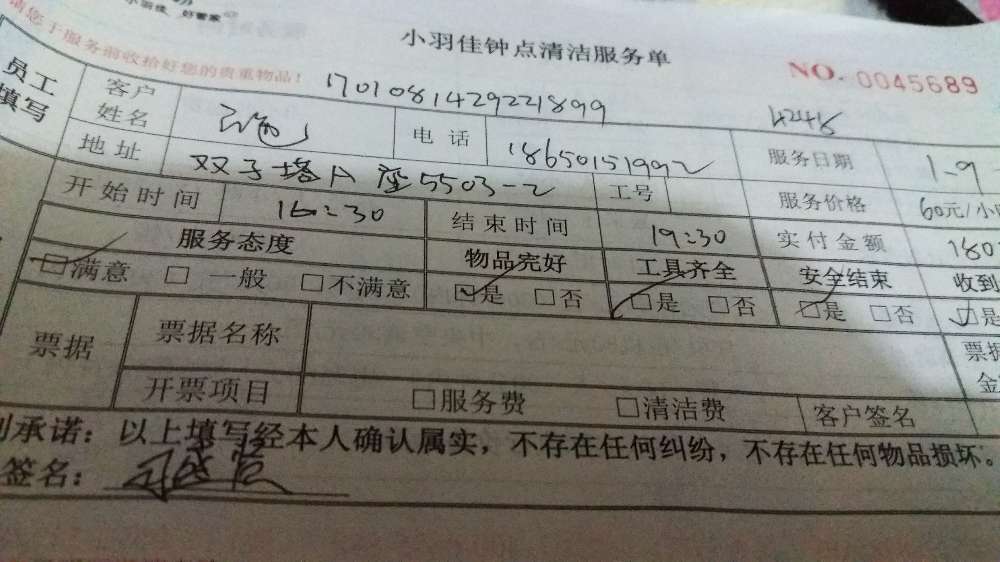 小羽佳 好管家
小羽佳钟点清洁服务单
请您于服务前收拾好您的贵重物品!
NO. 0045689
员工填写
1701081429221899
客户姓名 电话 18650151992 服务日期 1-9
地址 双子塔A座5503-2 工号 服务价格 60元/小
开始时间 16:30 结束时间 19:30 实付金额 180
服务态度 物品完好 工具齐全 安全结束 收到
□满意 □一般 □不满意 □是 □否 □是 □否 □是 □否 □是
票据 票据名称 票据金
开票项目 □服务费 □清洁费 客户签名
承诺：以上填写经本人确认属实，不存在任何纠纷，不存在任何物品损坏。
签名：